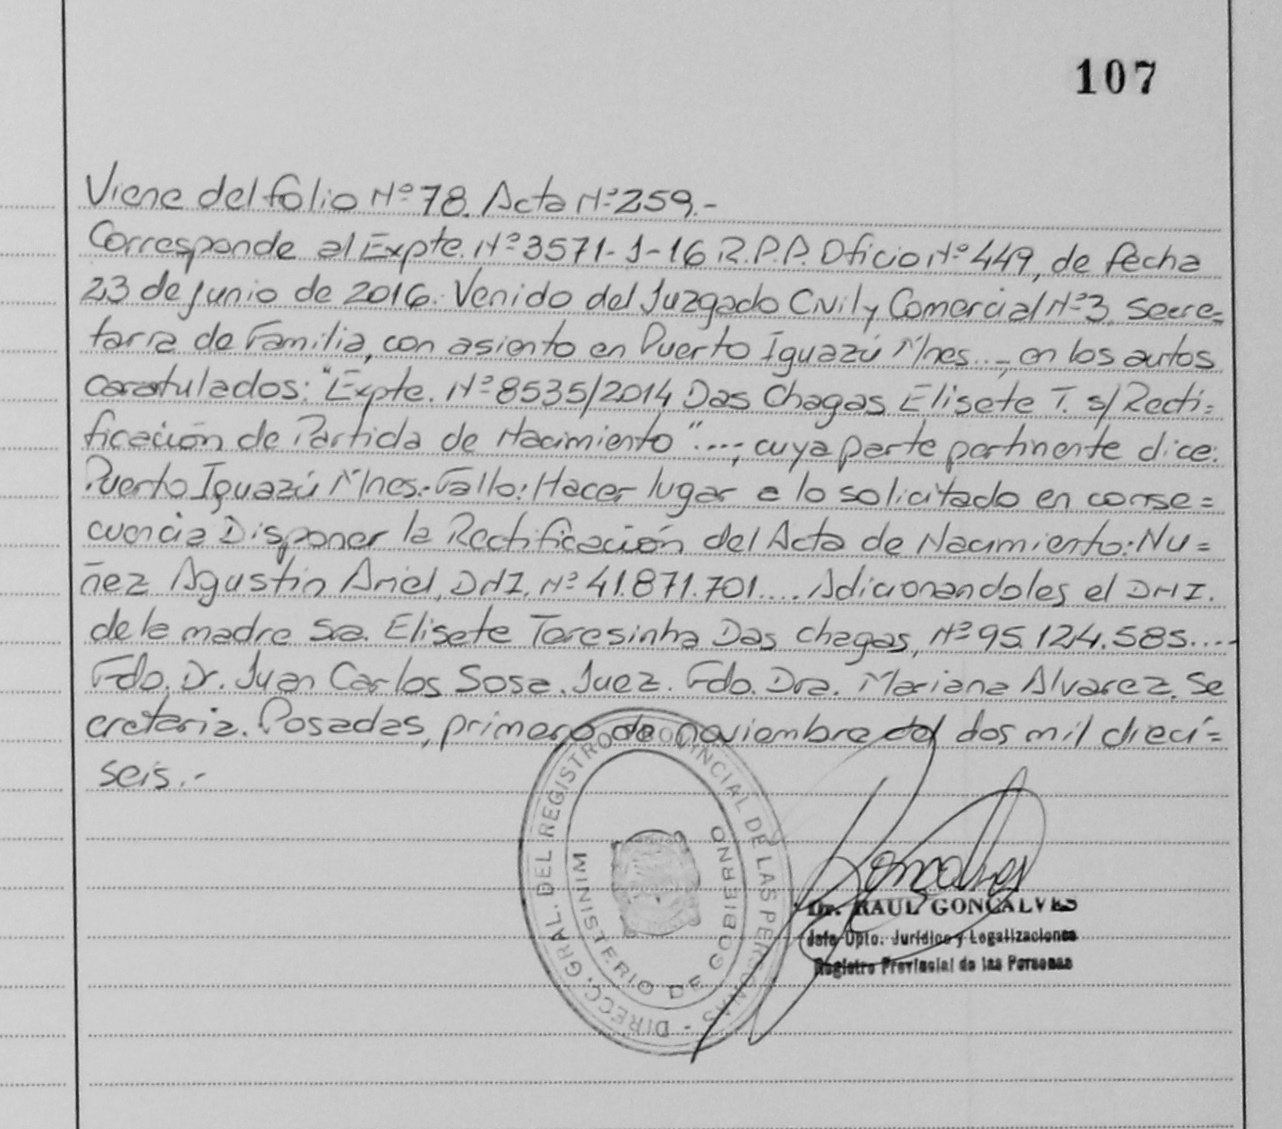 107
Viene del folio Nº 78. Acta Nº 259.-
Corresponde al Expte. Nº 3571-J-16 R.P.P. Oficio Nº 449, de fecha
23 de junio de 2016. Venido del Juzgado Civil y Comercial Nº 3, Secre=
taria de Familia, con asiento en Puerto Iguazú Mnes..., en los autos
caratulados: "Expte. Nº 8535/2014 Das Chagas Elisete T. s/Recti=
ficación de Partida de Nacimiento"...; cuya parte pertinente dice:
Puerto Iguazú Mnes.- Fallo: Hacer lugar a lo solicitado en conse=
cuencia Disponer la Rectificación del Acta de Nacimiento: Nu=
ñez Agustin Ariel, DNI. Nº 41.871.701.... Adicionandoles el DNI.
de la madre Sra. Elisete Teresinha Das Chagas, Nº 95.124.585....
Fdo. Dr. Juan Carlos Sosa. Juez. Fdo. Dra. Mariana Alvarez. Se
cretaria. Posadas, primero de noviembre del dos mil dieci=
seis.-
DIRECC. GRAL. DEL REGISTRO PROVINCIAL DE LAS PERSONAS -
MINISTERIO DE GOBIERNO
Dr. RAUL GONCALVES
Jefe Dpto. Jurídico y Legalizaciones
Registro Provincial de las Personas